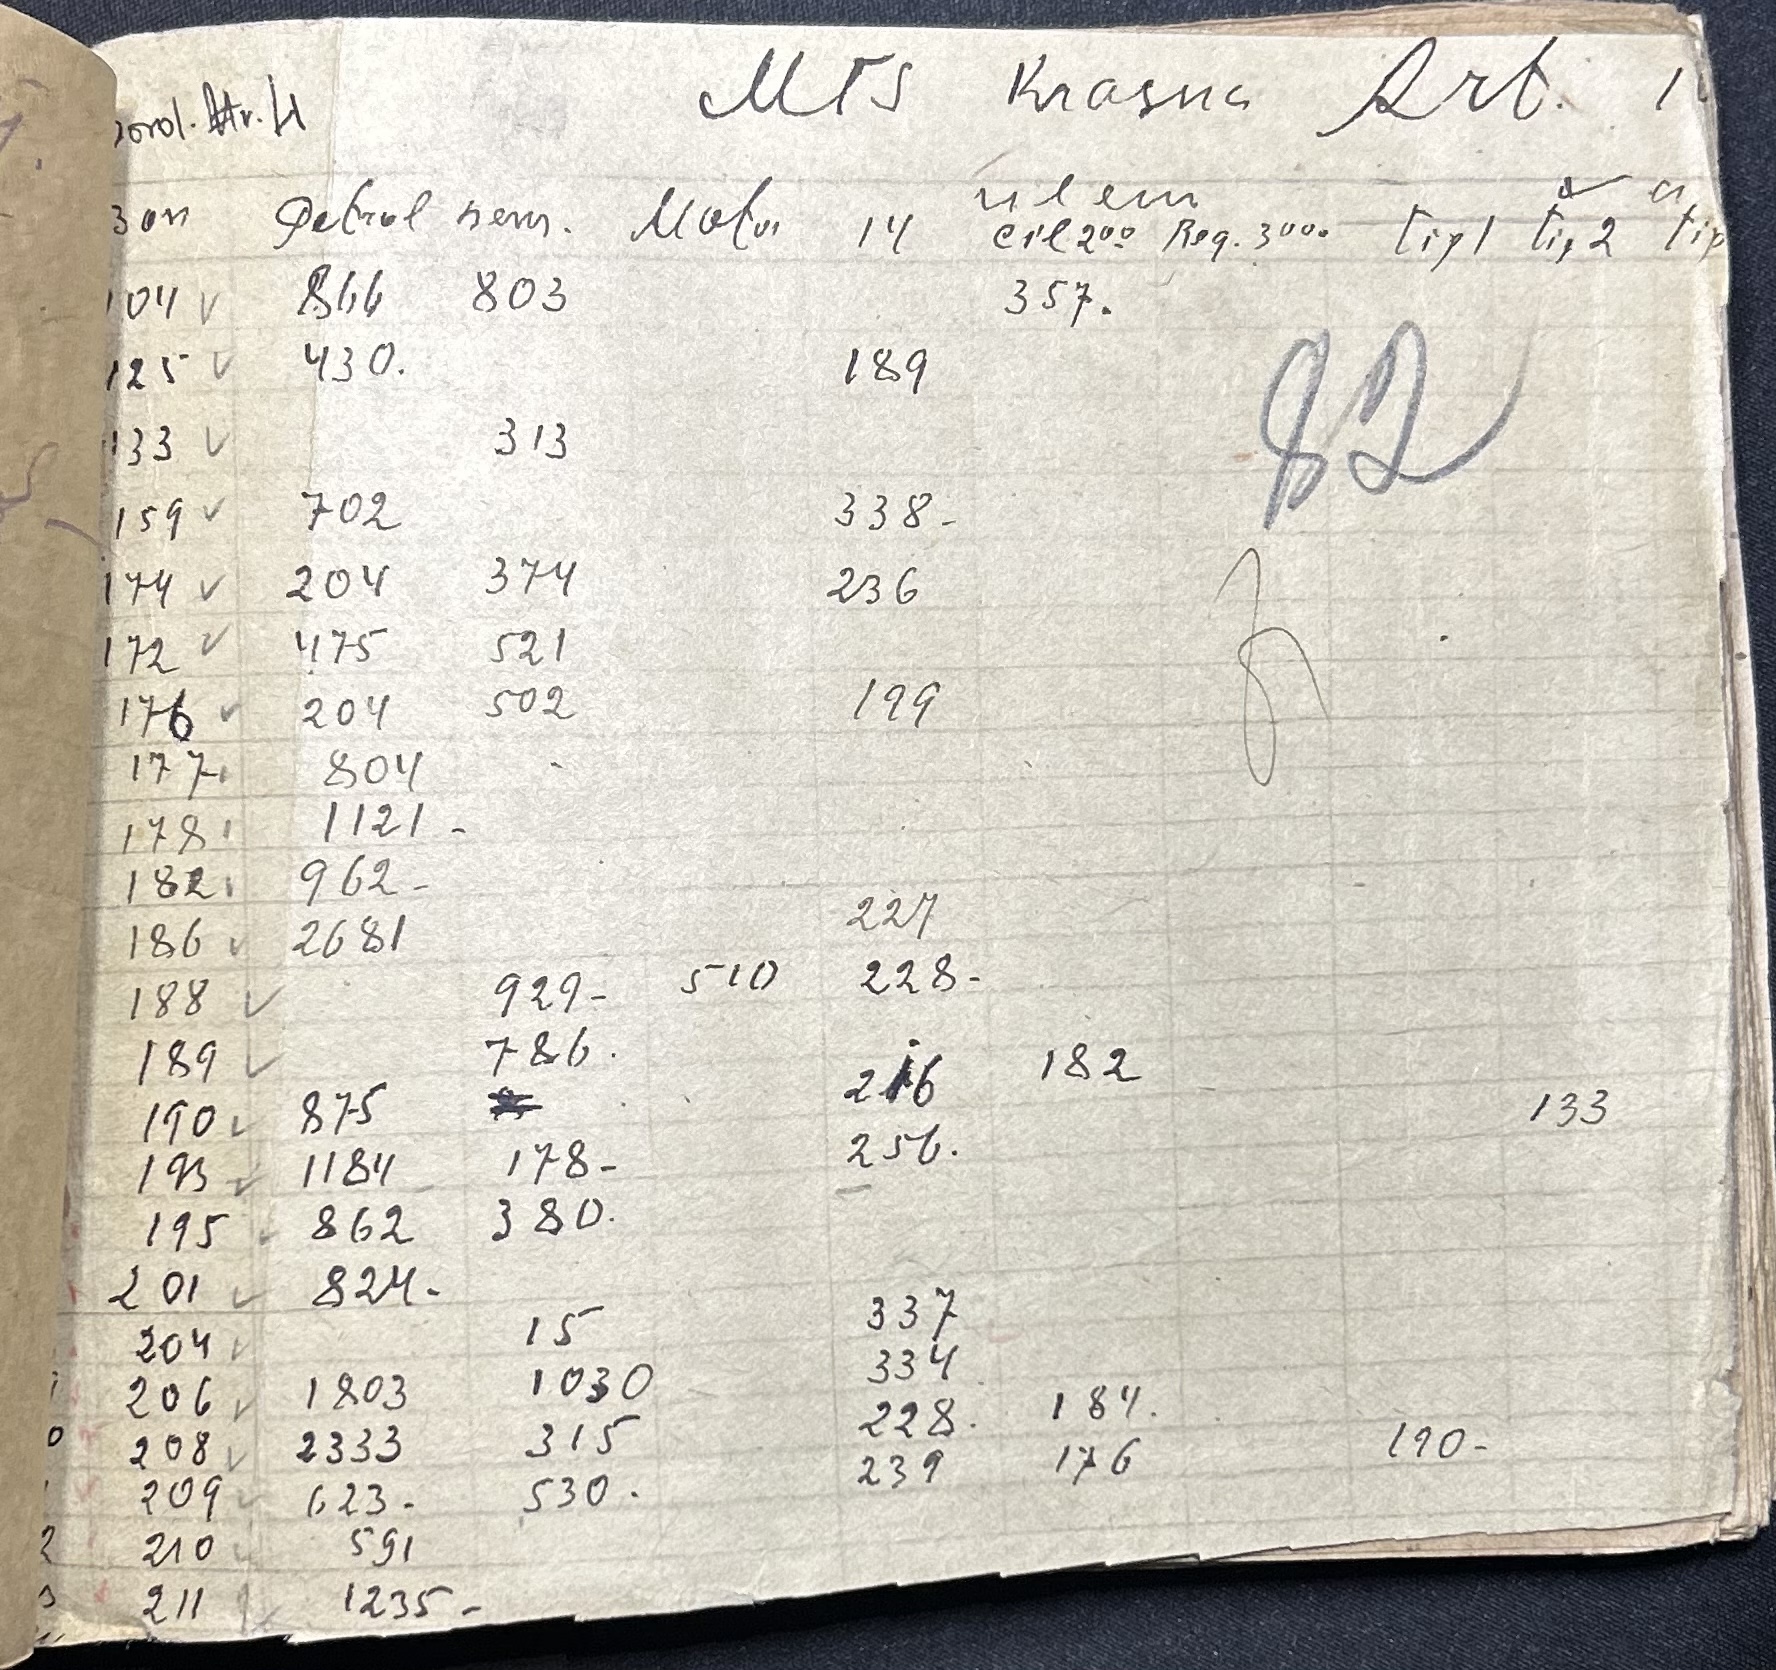 MTS Krasna Art. 1
Nr.
Petrol sem. Motor 14 ulem
cil 200 Reg. 3000 tip 1 tip 2 tip
104 866 803 357.
125 430. 189
133 313
159 702 338-
174 204 374 236
172 475 521
176 204 502 199
177 804
178 1121-
182 962-
186 2681 227
188 929- 510 228-
189 786. 216 182
190 875 133
193 1184 178- 256.
195 862 380.
201 824-
204 15 337
206 1803 1030 334
208 2333 315 228. 184.
209 623- 530. 239 176 190-
210 591
211 1235-
82